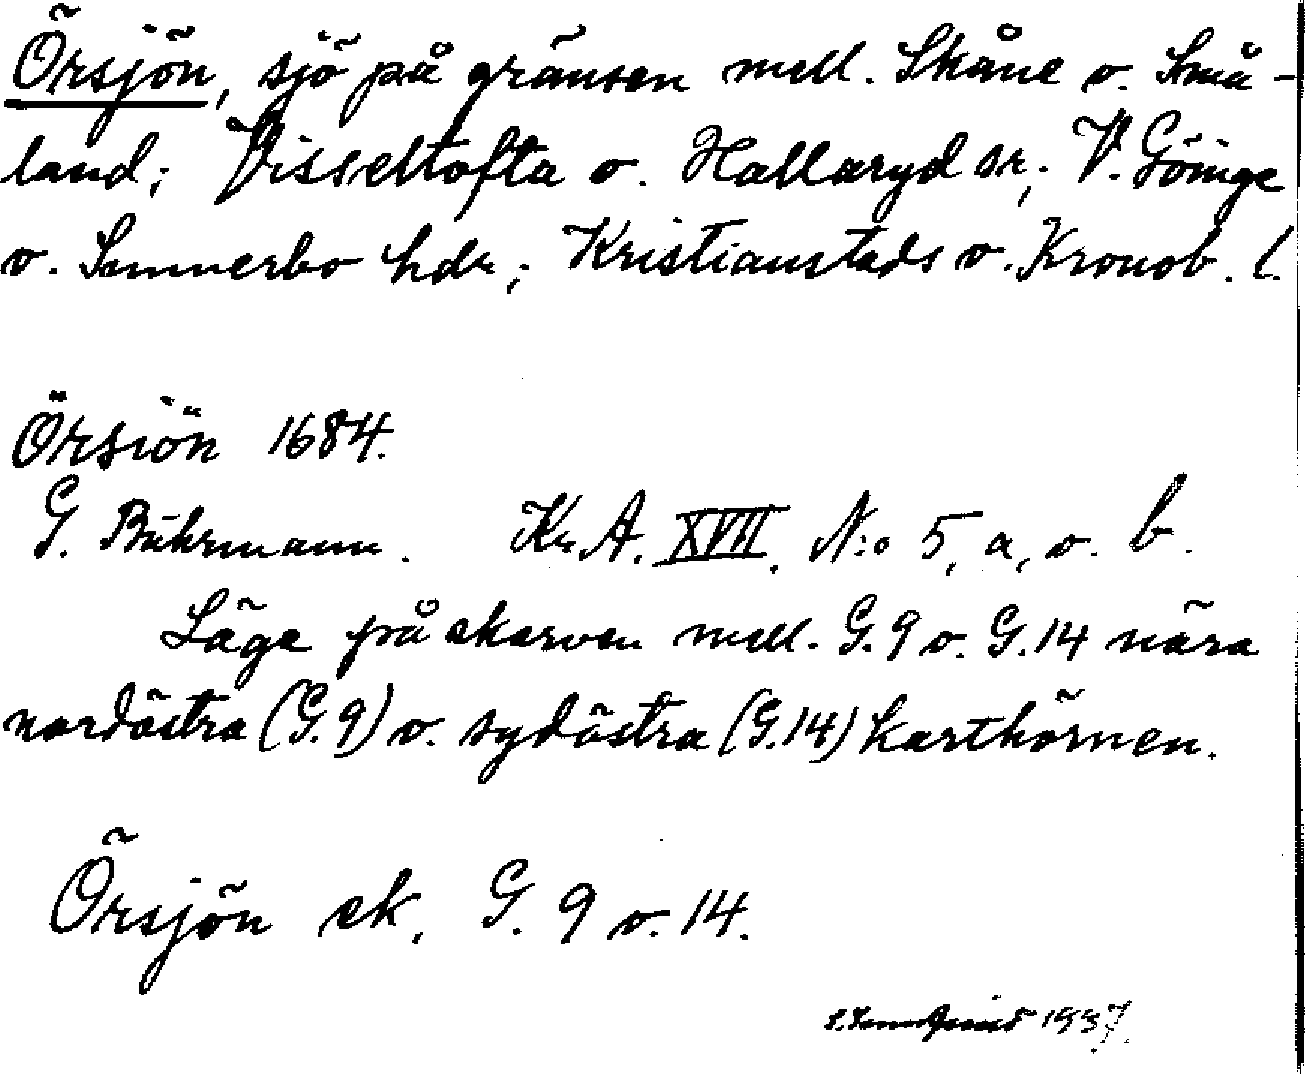 Örsjön, sjö på gränsen mell. Skåne o. Små-
land; Visseltofta o. Hallaryd sr; V. Göinge
o. Sunnerbo hdr; Kristianstads o. Kronob. l.
Örsiön 1684.
G. Buhrmann. Kr. A. XVII. N:o 5, a, o. b.
Läge på skarven mell. G. 9 o. G. 14 nära
nordöstra (G. 9) o. sydöstra (G. 14) karthörnen.
Örsjön ek. G. 9 o. 14.
1937.